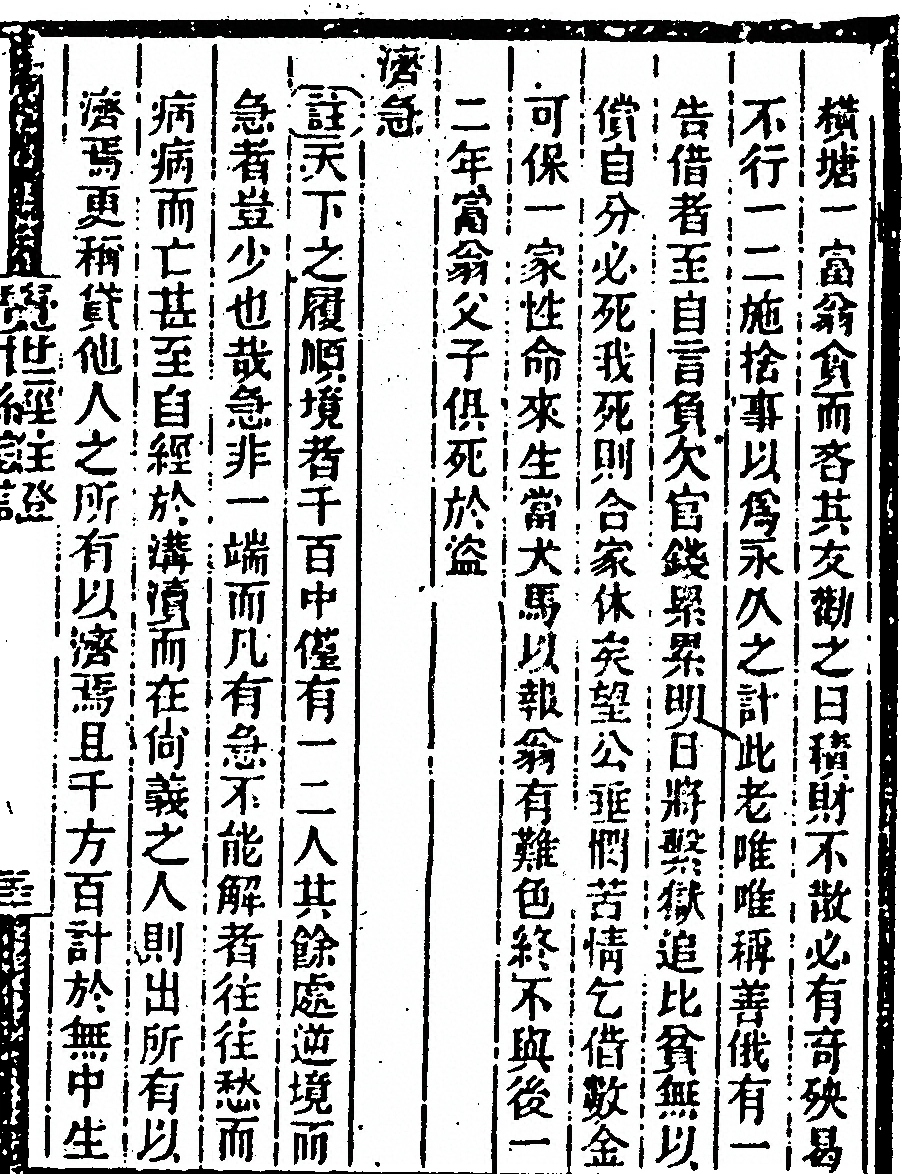 橫塘一富翁貪而吝其友勸之曰積財不散必有奇殃曷
不行一二施捨事以爲永久之計此老唯唯稱善俄有一
告借者至自言負欠官錢累累明日將繫獄追比貧無以
償自分必死我死則合家休矣望公垂憫苦情乞借數金
可保一家性命來生當犬馬以報翁有難色終不與後一
二年富翁父子俱死於盜
濟急
註天下之履順境者千百中僅有一二人其餘處逆境而
急者豈少也哉急非一端而凡有急不能解者往往愁而
病病而亡甚至自經於溝瀆而在尙義之人則出所有以
濟焉更稱貸他人之所有以濟焉且千方百計於無中生
覺世經註證